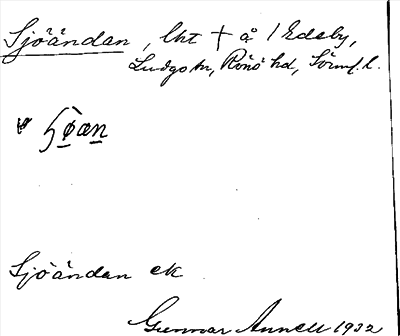 Sjöändan, lht † å 1 Edeby,
Ludgo sn, Rönö hd, Sörml. l.
Sjöändan ek
Gunnar Annell 1932